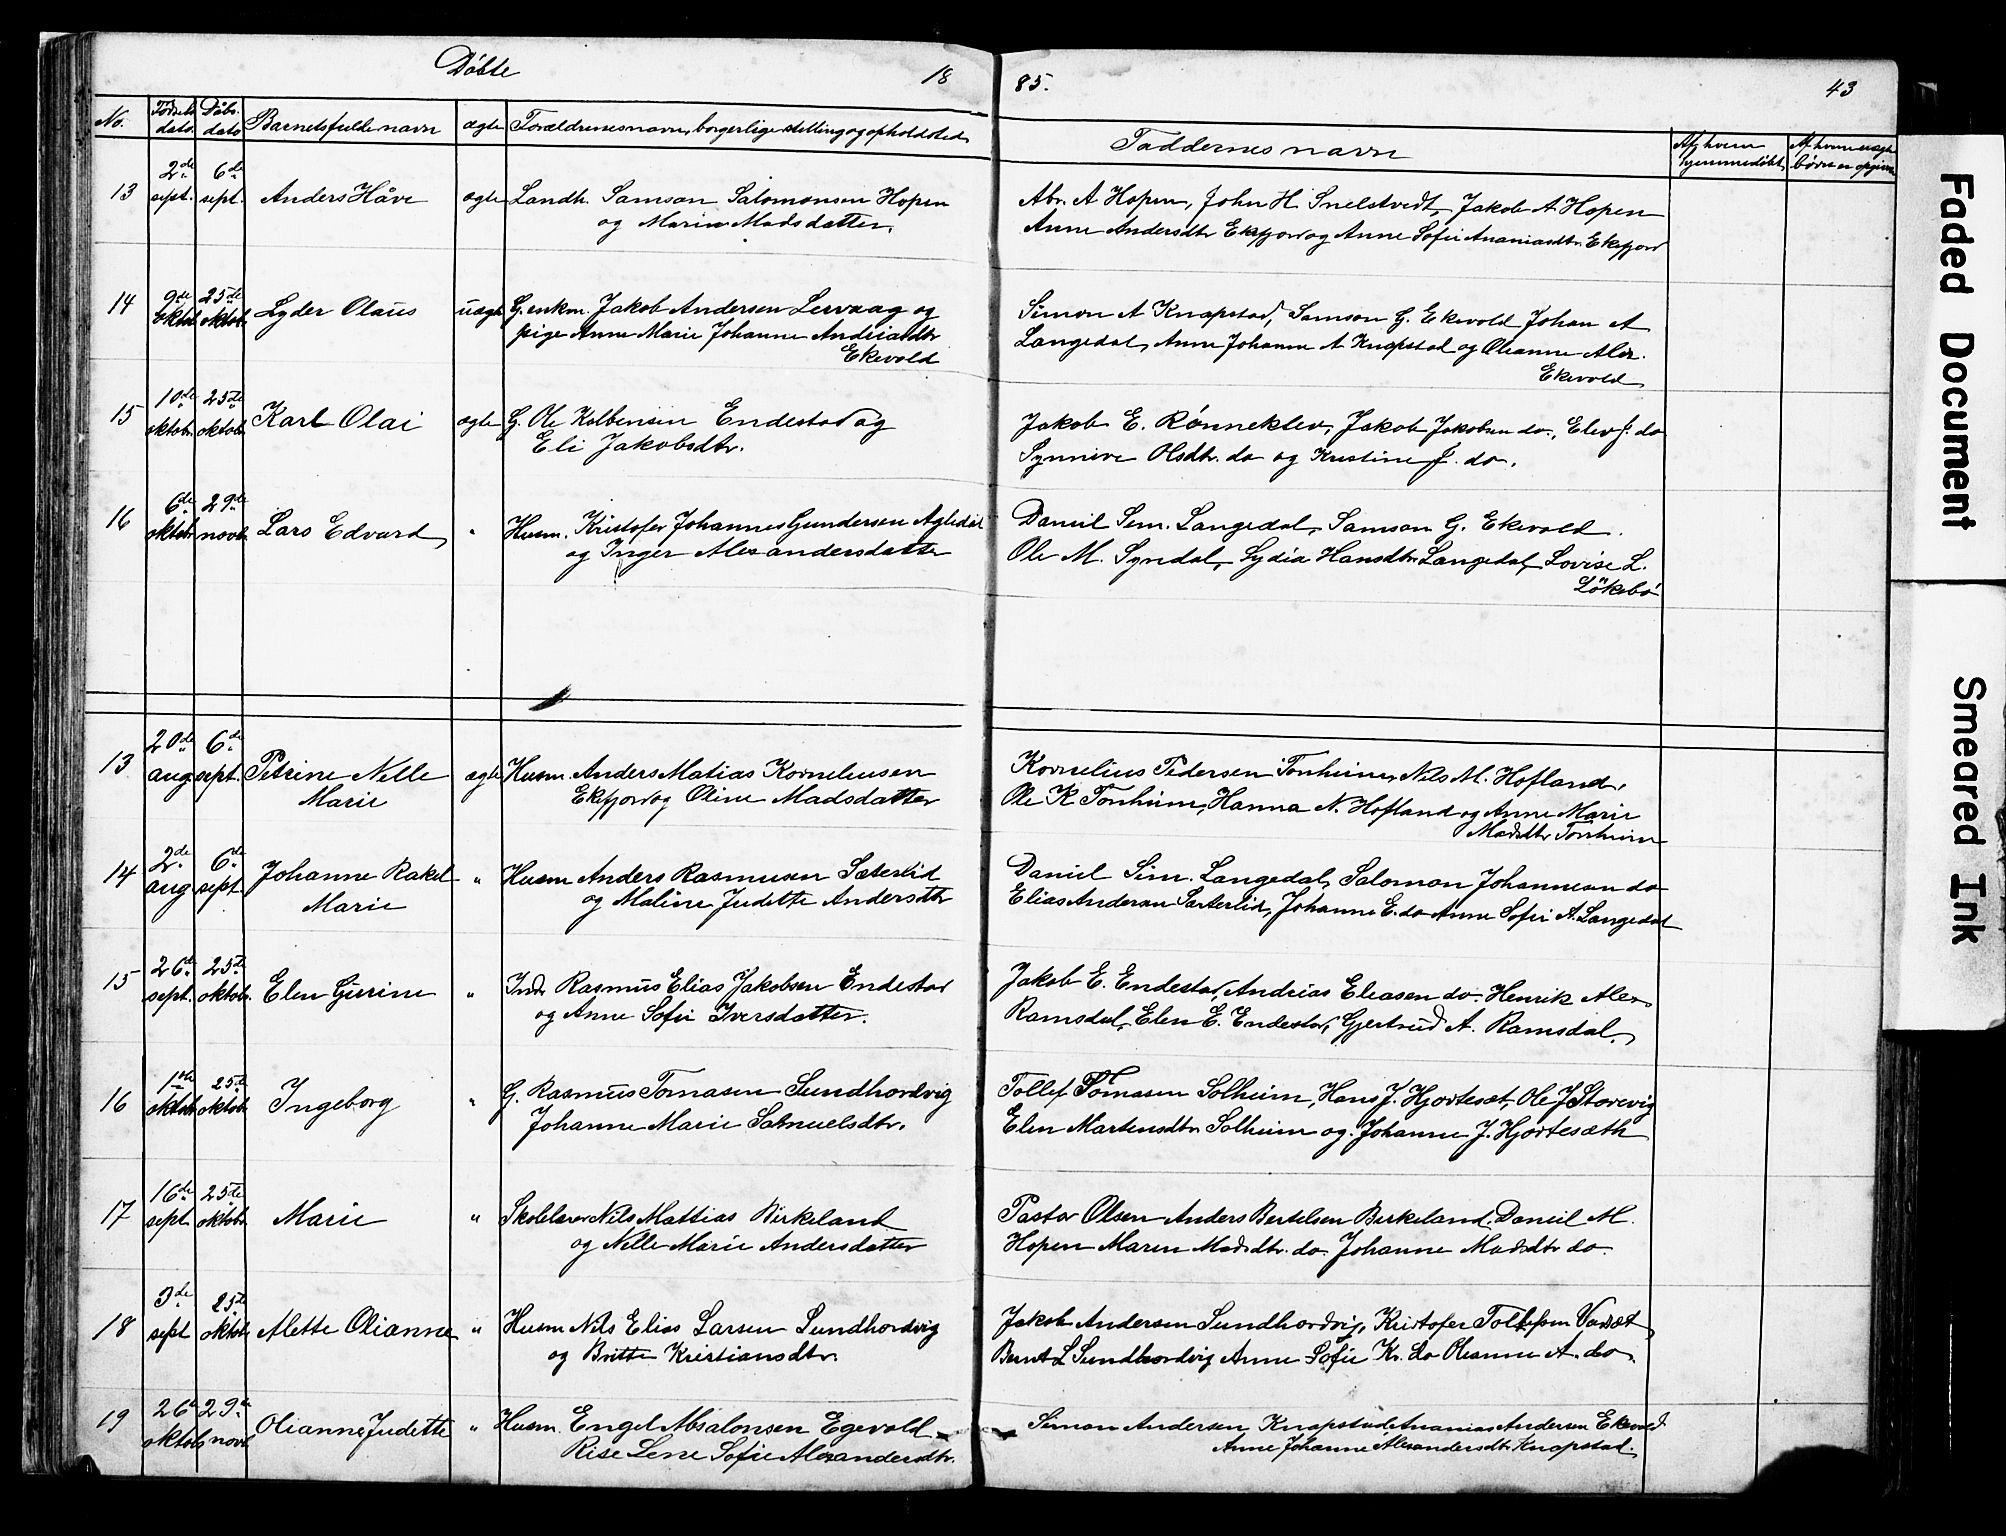 Döbte 18 85. 43
No. Födsels dato Dåbs dato Barnets fulde navn ægte Forældrenes navn, borgerlige stilling og opholdssted Faddernes navn Af hvem hjemmedöbt
13 2de sept. 6de sept. Anders Håve ægte Landh. Samson Salomonsen Hopen Abr. A Hopen, John H. Snelstvedt, Jakob A Hopen
og Marin Madsdatter. Anne Andersdtr Ekefjord og Anne Sofie Ananiasdtr. Ekefjord
14 9de oktob 25de oktob. Lyder Olaus uægte G. enkm. Jakob Andersen Lervaag og Simon A Knapstad, Samson G. Ekevold Johan A
pige Anne Marie Johanne Andreasdtr Langedal, Anne Johanne A Knapstad og Oleanne Alex.
Ekevold Ekevold
15 10de oktob. 25de oktob. Karl Olai ægte G. Ole Kolbensen Endestad og Jakob E. Rönneklev, Jakob Jakobsen do., Elev J. do
Eli Jakobsdtr. Synneve Olsdtr. do og Kristine J. do.
16 6de oktob 29de novb. Lars Edvard " Husm. Kristofer Johannes Gundersen Agledal Daniel Sem. Langedal, Samson G. Ekevold.
og Inger Alexandersdatter Ole M. Syndal, Lydia Hansdtr. Langedal, Lovise L.
Lökebö
13 20de aug 6de sept. Petrine Nelle ægte Husm. Anders Matias Korneliusen Kornelius Pedersen Tonheim, Nils M. Hofland,
Marie Ekefjord og Oline Madsdatter Ole K Tonheim, Hanna N. Hofland og Anne Marie
Madsdtr Tonheim
14 2de aug 6de sept. Johanne Rakel " Husm Anders Rasmusen Sæterlid Daniel Sim. Langedal, Salomon Johannesen do
Marie og Maline Judette Andersdtr Elias Andersen Sæterlid, Johanne E. do Anne Sofie A. Langedal
15 26de sept. 25de oktob. Elen Gurine " Indr Rasmus Elias Jakobsen Endestad Jakob E. Endestad, Andreas Eleasen do. Henrik Alex.
og Anne Sofie Iversdatter. Ramsdal, Elen E. Endestad, Gjertrud A. Ramsdal.
16 1ste oktob 25de oktob. Ingeborg " G. Rasmus Tomasen Sundhordvig Tollef Tomasen Solheim, Hans J. Hjortesæt, Ole J Storevig
Johanne Marie Samuelsdtr. Elen Martensdtr Solheim og Johanne J. Hjortesæth
17 16de sept. 25de oktob. Marie " Skolelærer Nils Mattias Birkeland Pastor Olsen Anders Bertelsen Birkeland, Daniel M.
og Nelle Marie Andersdatter Hopen Maren Madsdtr. do. Johanne Madsdtr do.
18 3de sept 25de oktob. Alette Olianne " Husm Nils Elias Larsen Sundhordvig Jakob Andersen Sundhordvig, Kristofer Tollefsen Varsæt,
og Britte Kristiansdtr. Bernt L Sundhordvig Anne Sofie Kr. do Oleanne A. do.
19 26de oktob 29de novb. Olianne Judette " Husm. Engel Absalonsen Egevold Simon Andersen Knapstad, Ananias Andersen Ekevold
Rise Lene Sofie Alexandersdtr. Anne Johanne Alexandersdtr. Knapstad.
Faded Document
Smeared Ink